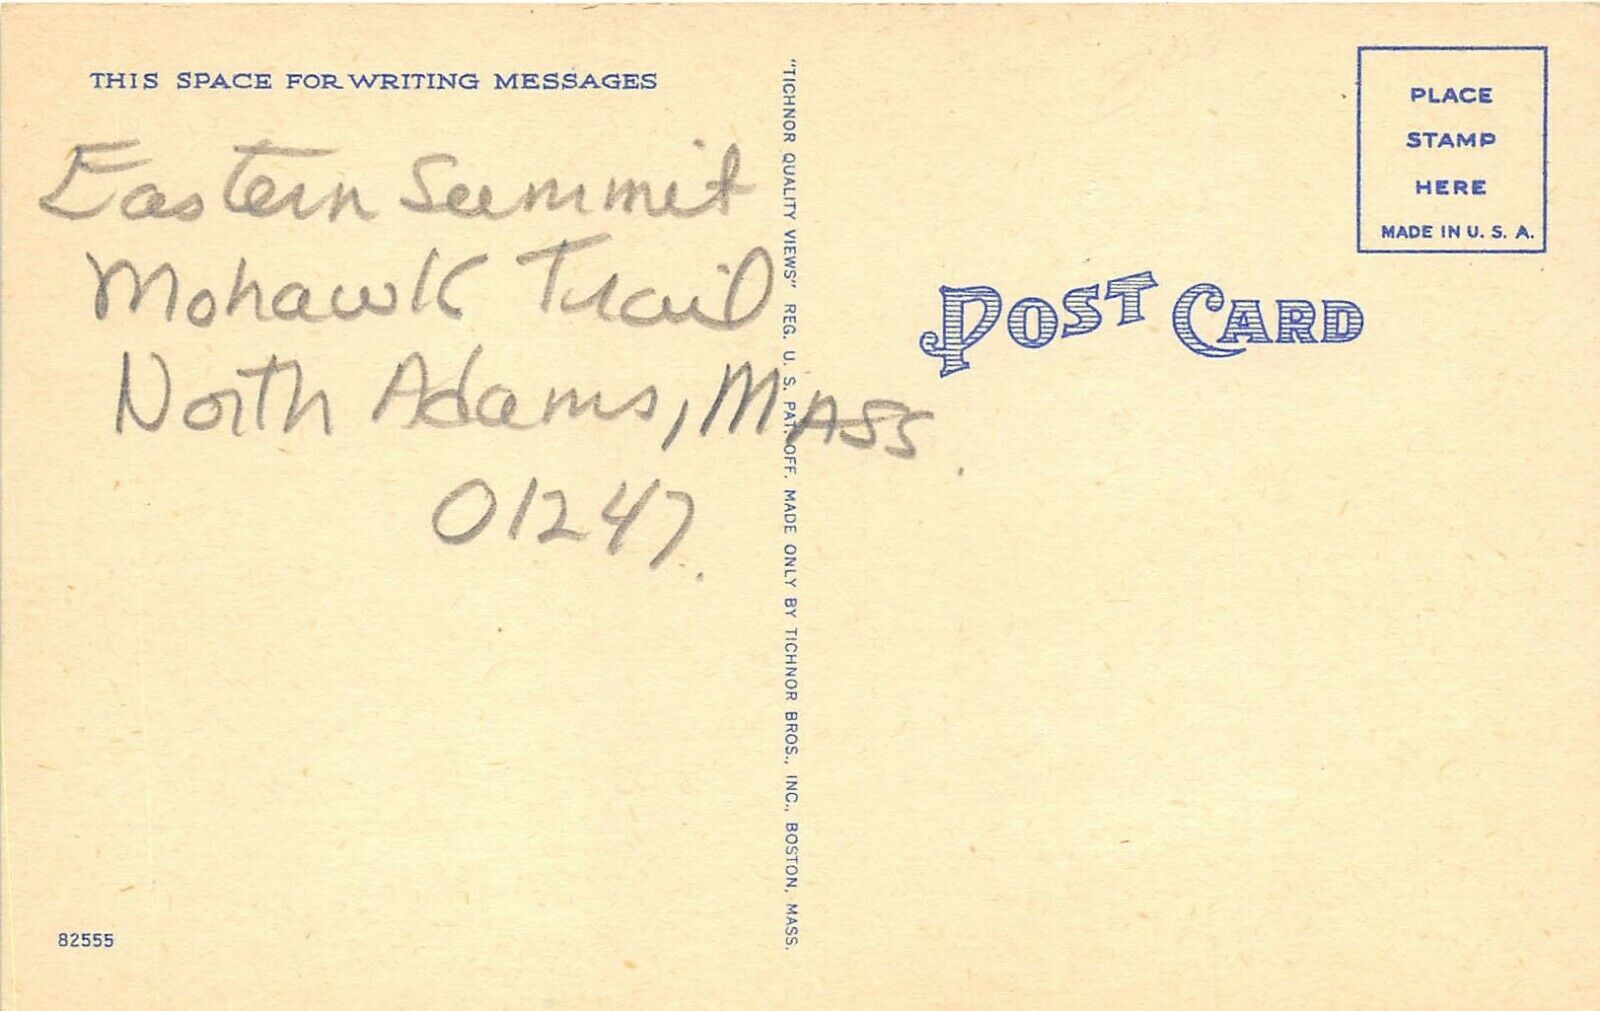 THIS SPACE FOR WRITING MESSAGES
Eastern Summit
Mohawk Trail
North Adams, Mass.
01247.
82555
"TICHNOR QUALITY VIEWS" REG. U. S. PAT. OFF. MADE ONLY BY TICHNOR BROS., INC., BOSTON, MASS.
PLACE
STAMP
HERE
MADE IN U. S. A.
POST CARD